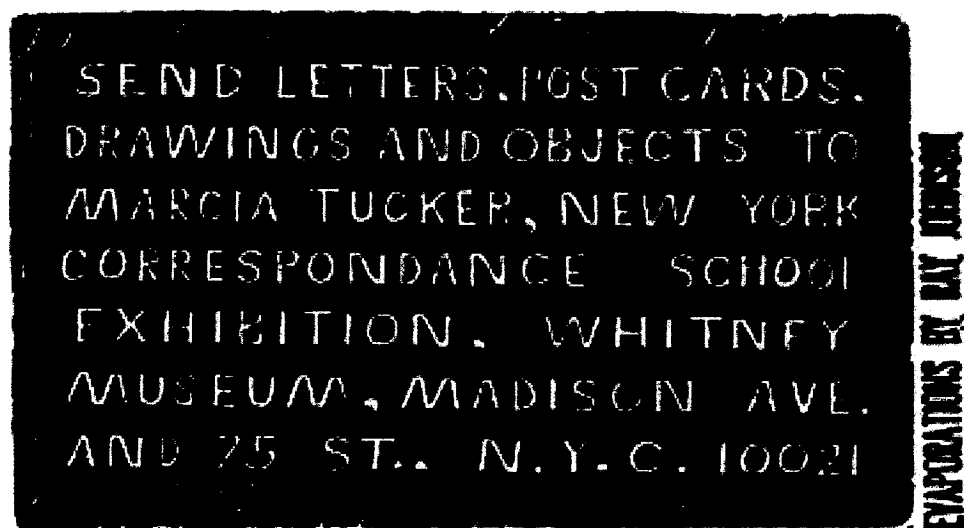 SEND LETTERS. POST CARDS.
DRAWINGS AND OBJECTS TO
MARCIA TUCKER, NEW YORK
CORRESPONDANCE SCHOOL
EXHIBITION. WHITNEY
MUSEUM, MADISON AVE.
AND 75 ST.. N.Y.C. 10021
EVAPORATIONS BY RAY JOHNSON